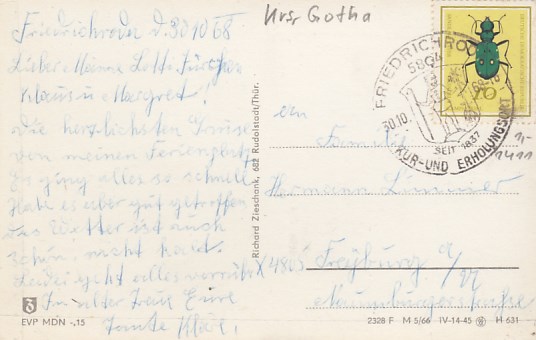 Krsr Gotha
Friedrichroda d. 30 10 68
Lieber Lotti
Klaus u Margret!
Die herzlichsten Grüße
von meinem Ferienplatz
Es ging alles so schnell
Habe es aber gut getroffen
Das Wetter ist auch
schön, nicht kalt.
Leider geht alles vorüber
In alter Treue Eure
Tante Klär.
EVP MDN -,15
Richard Zieschank, 682 Rudolstadt/Thür.
FRIEDRICHRODA
5804
30.10.
SEIT 1837
KUR- UND ERHOLUNGSORT
10
1,-
1411
an
Familie
Hermann
(4805) Freyburg a/
Naumburgerstraße
2328 F M 5/66 IV-14-45 H 631